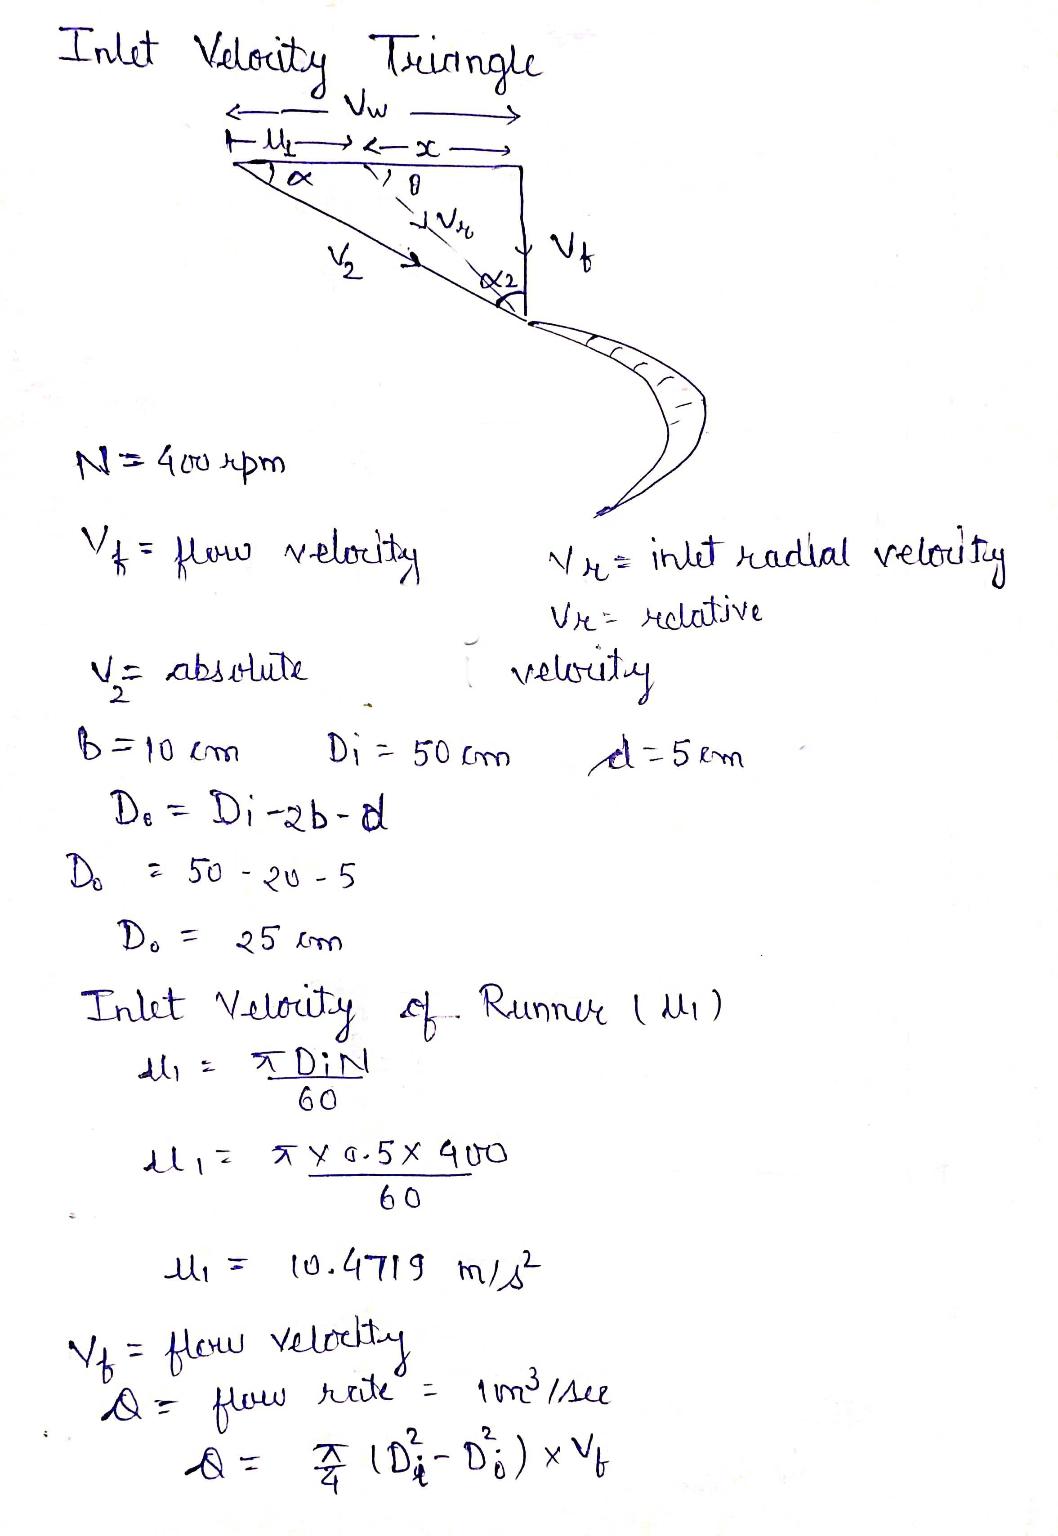 Inlet Velocity Triangle
Vw
u1 x
α θ
Vr
V2 Vf
α2
N = 400 rpm
Vf = flow velocity Vr = inlet radial velocity
Vr = relative
V2 = absolute velocity
b = 10 cm Di = 50 cm d = 5 cm
De = Di - 2b - d
Do = 50 - 20 - 5
Do = 25 cm
Inlet Velocity of Runner (u1)
u1 = πDiN/60
u1 = π x 0.5 x 400/60
u1 = 10.4719 m/s²
Vf = flow velocity
Q = flow rate = 1m³/sec
Q = π/4 (Di² - Do²) x Vf